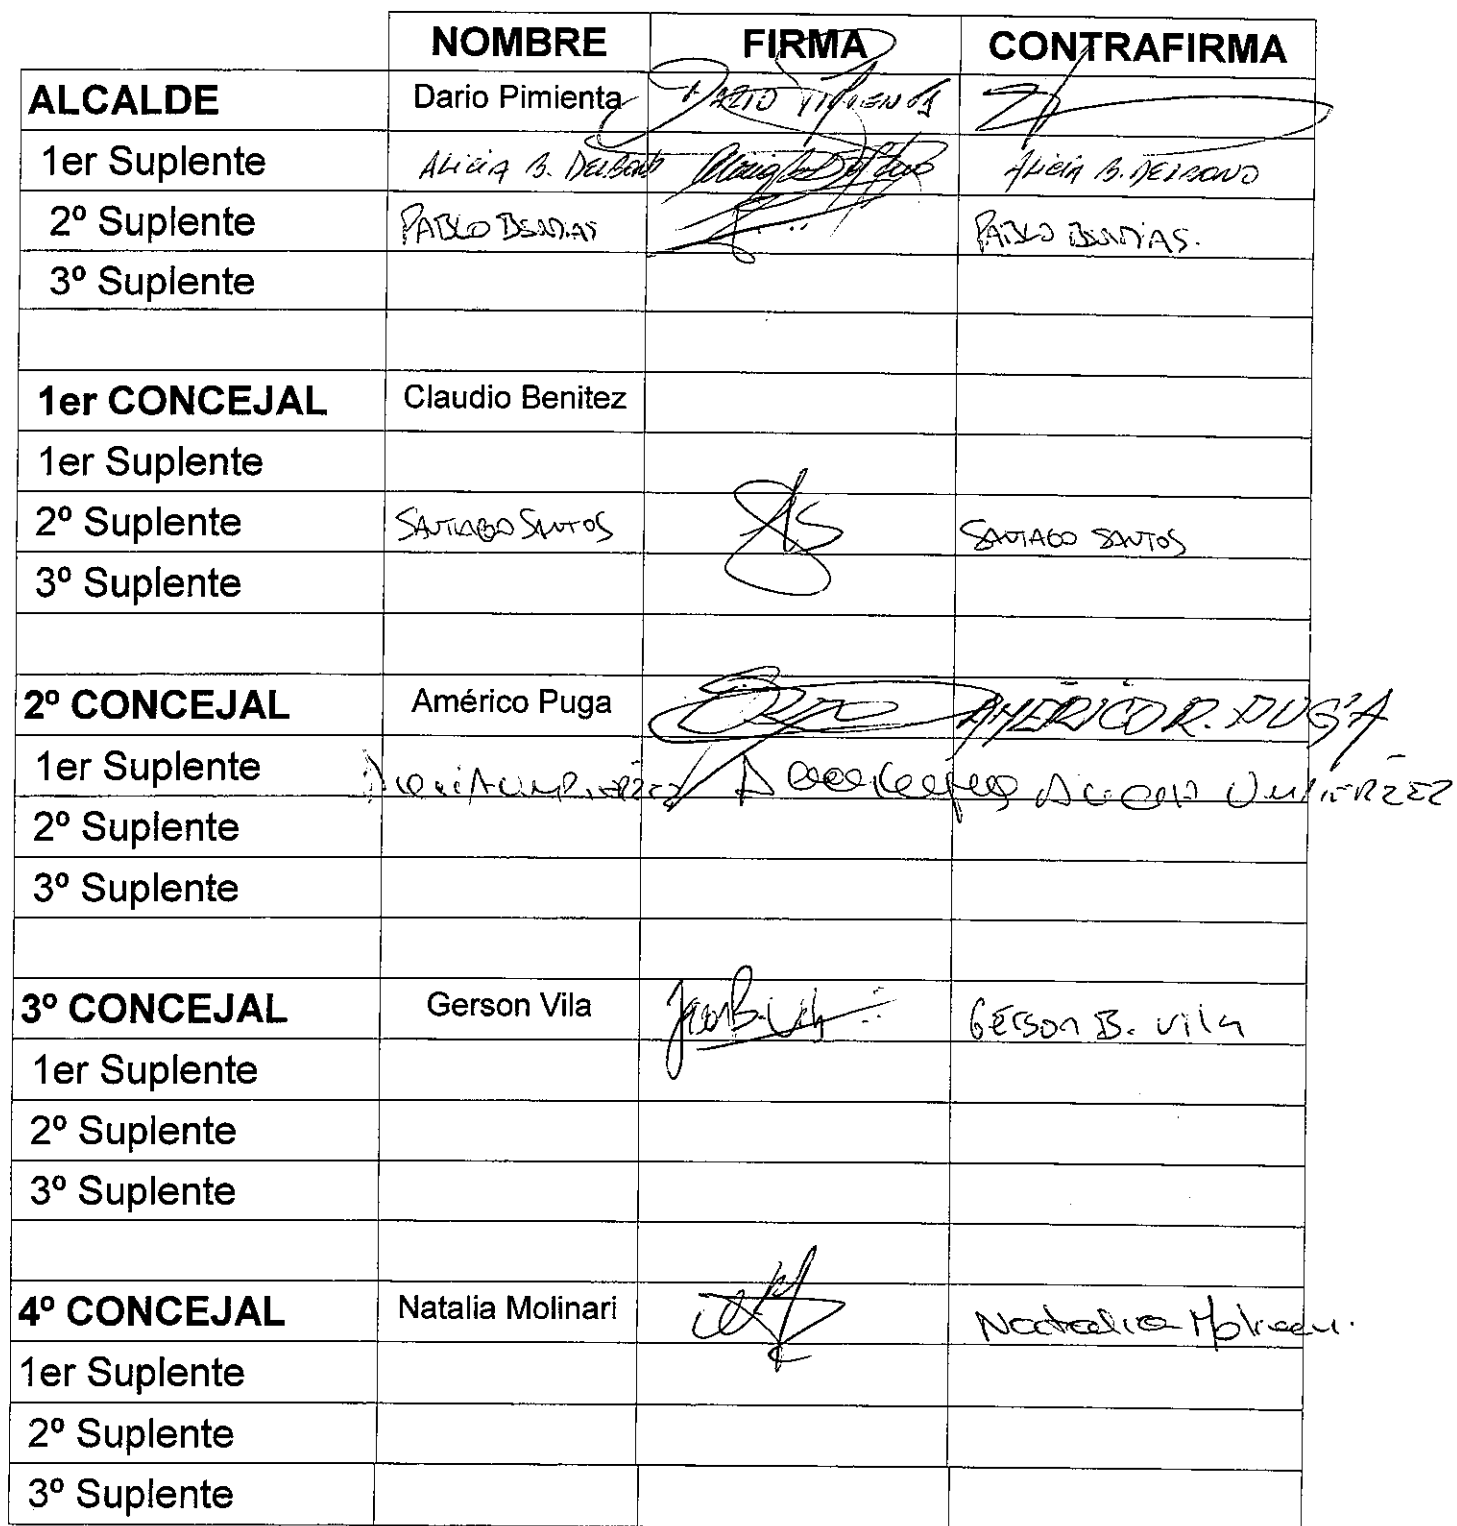 NOMBRE FIRMA CONTRAFIRMA
ALCALDE Dario Pimienta DARIO PIMIENTA
1er Suplente ALICIA B. DELBONO ALICIA B. DELBONO
2º Suplente PABLO PABLO
3º Suplente
1er CONCEJAL Claudio Benitez
1er Suplente
2º Suplente SANTIAGO SANTOS SANTIAGO SANTOS
3º Suplente
2º CONCEJAL Américo Puga AMÉRICO R. PUGA
1er Suplente
2º Suplente
3º Suplente
3º CONCEJAL Gerson Vila Gerson B. Vila
1er Suplente
2º Suplente
3º Suplente
4º CONCEJAL Natalia Molinari Natalia Molinari.
1er Suplente
2º Suplente
3º Suplente